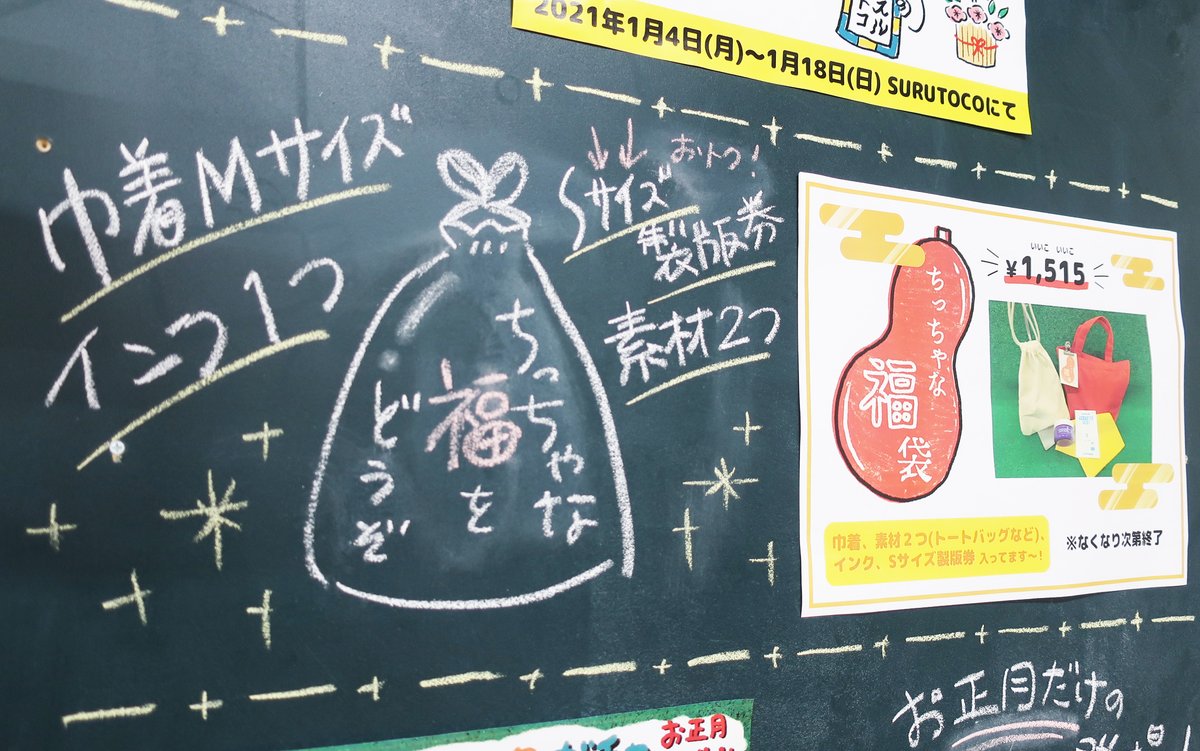 のスルトコ
2021年1月4日(月)〜1月18日(日) SURUTOCOにて
巾着Mサイズ
インク1つ
ちっちゃな
福を
どうぞ
おトク!
Sサイズ
製版券
素材2つ
ちっちゃな
福
袋
いいこ いいこ
¥1,515
巾着、素材2つ(トートバッグなど)、
インク、Sサイズ製版券 入ってます〜!
※なくなり次第終了
お正月
お正月だけの